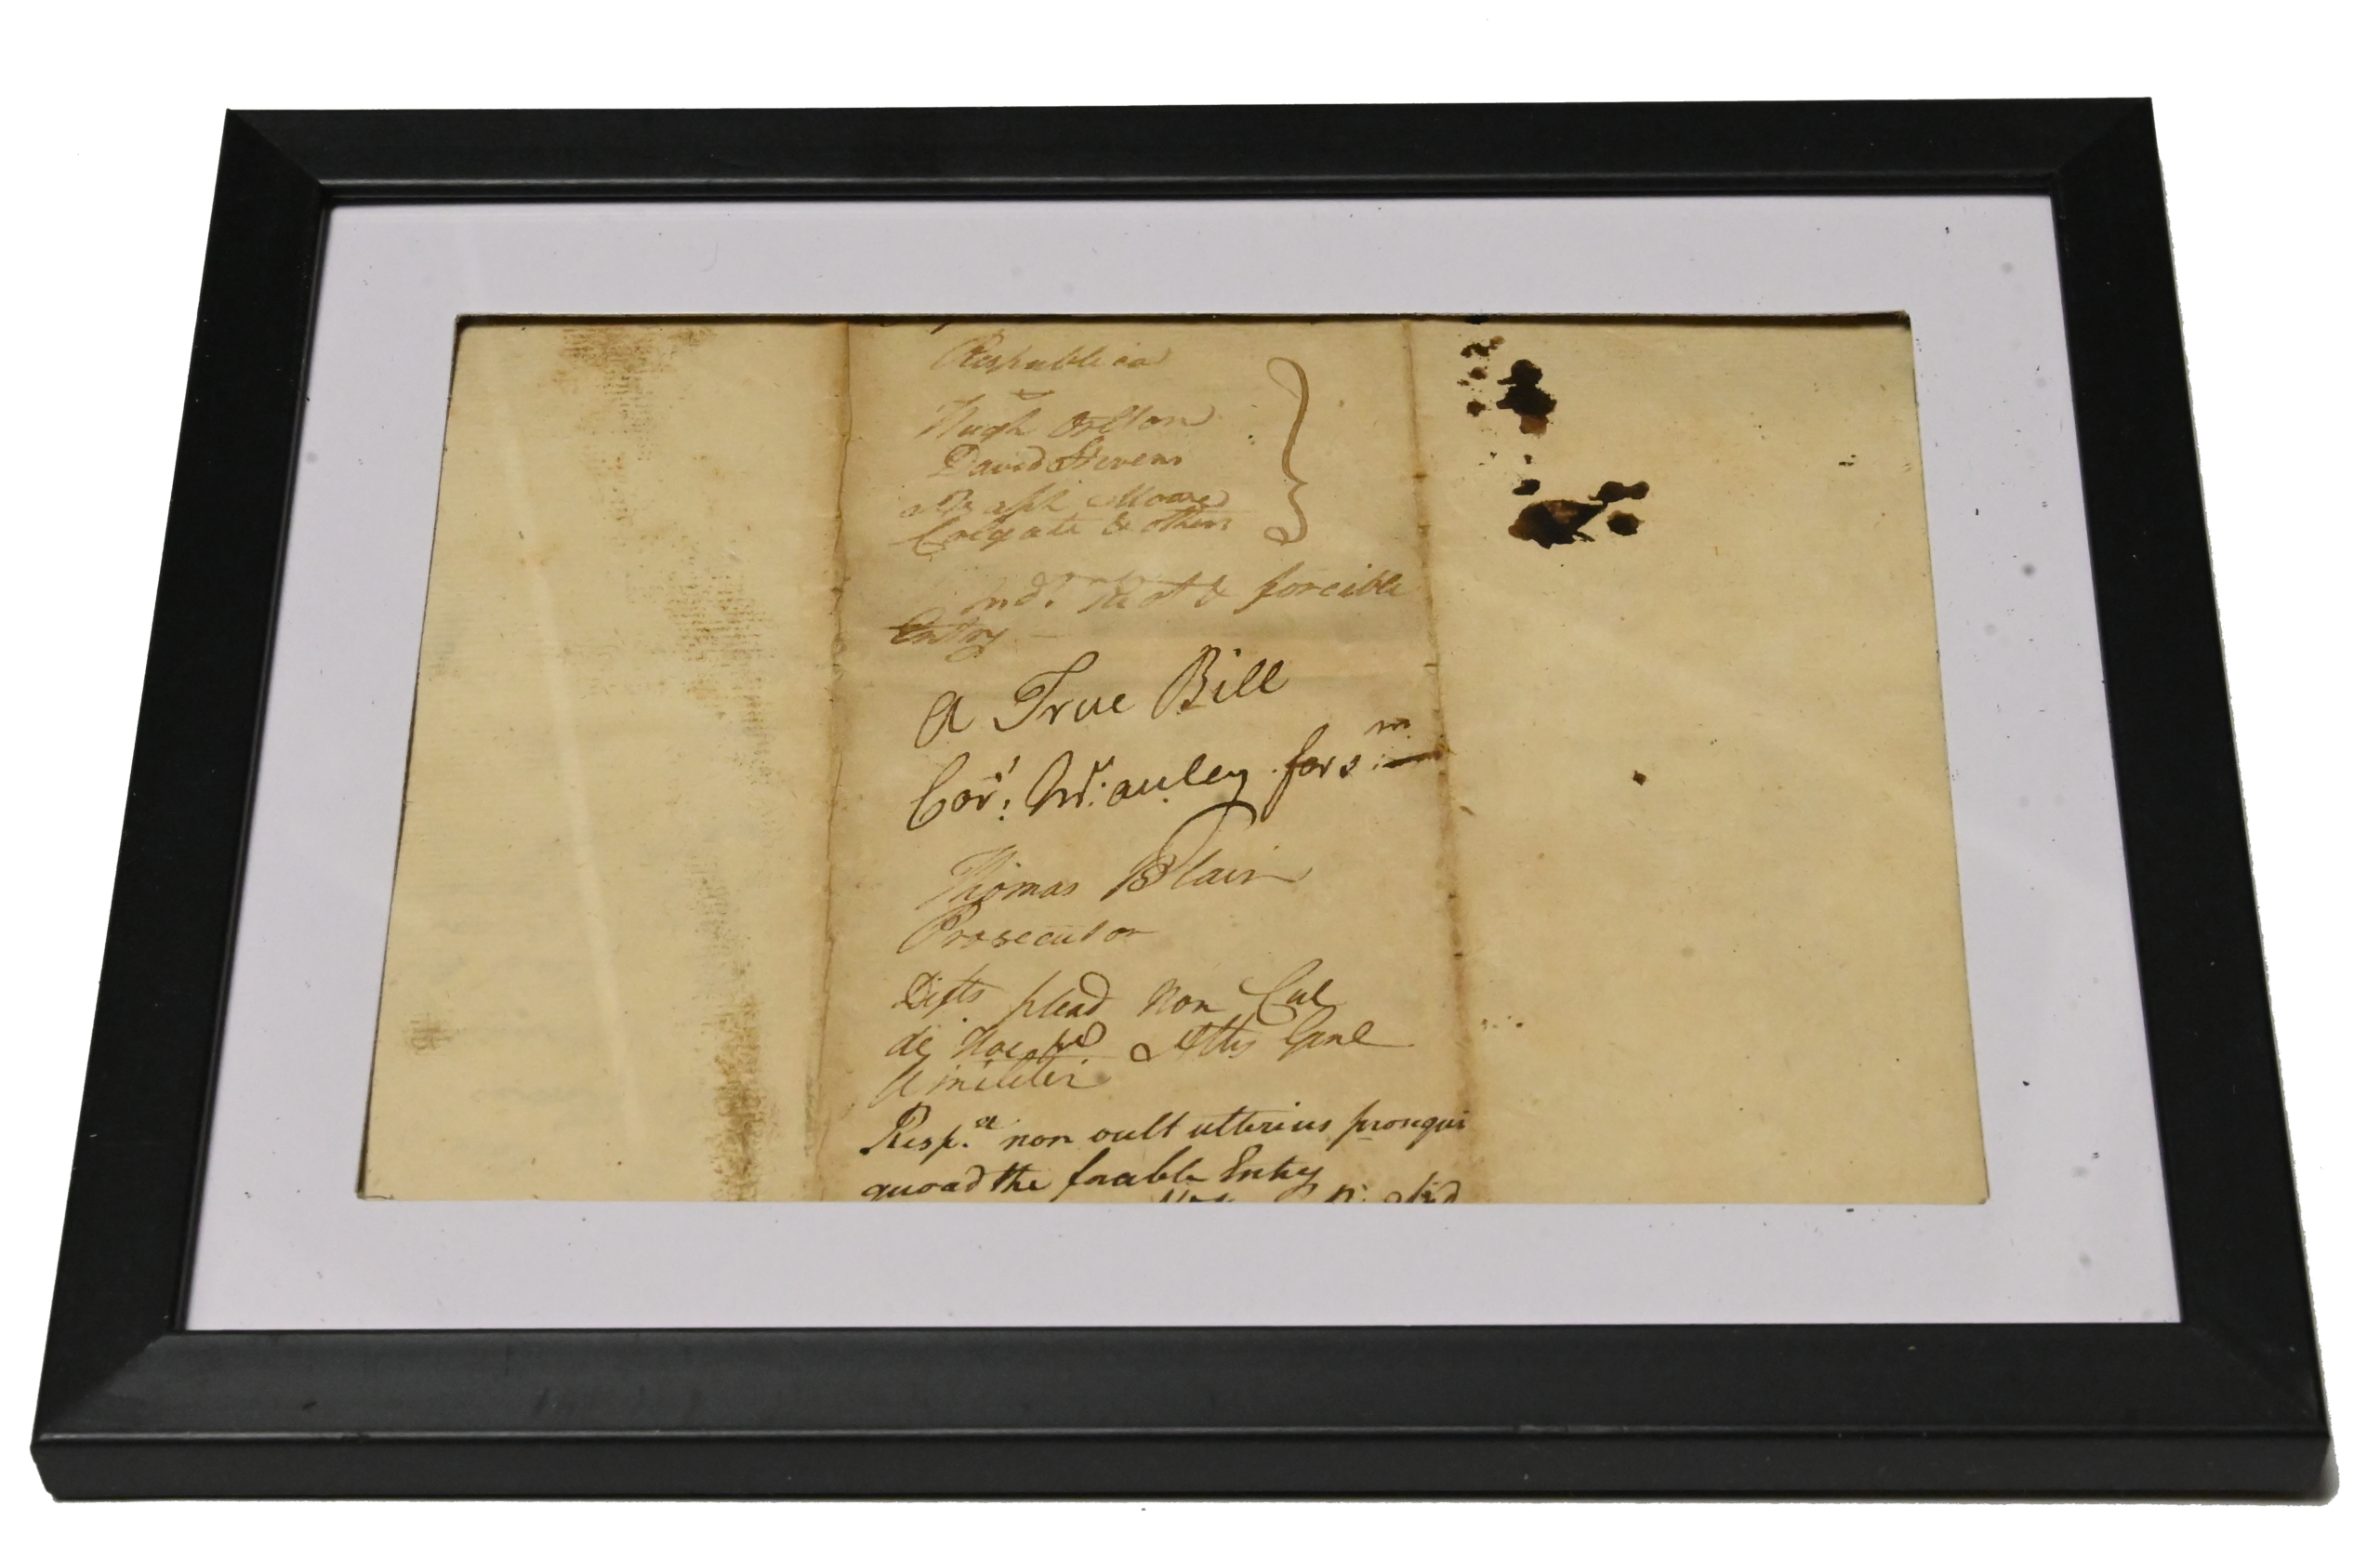 Respublica
v
Hugh
David Stevens
Ralph Moore
Colgate & others
Indt. Riot & forcible
Entry
A True Bill
Cors: McCauley forem
Thomas Blair
Prosecutor
Defts plead Non Cul
de hoc Atty Genl
similiter
Respa. non vult ulterius prosequi
quoad the forcible Entry